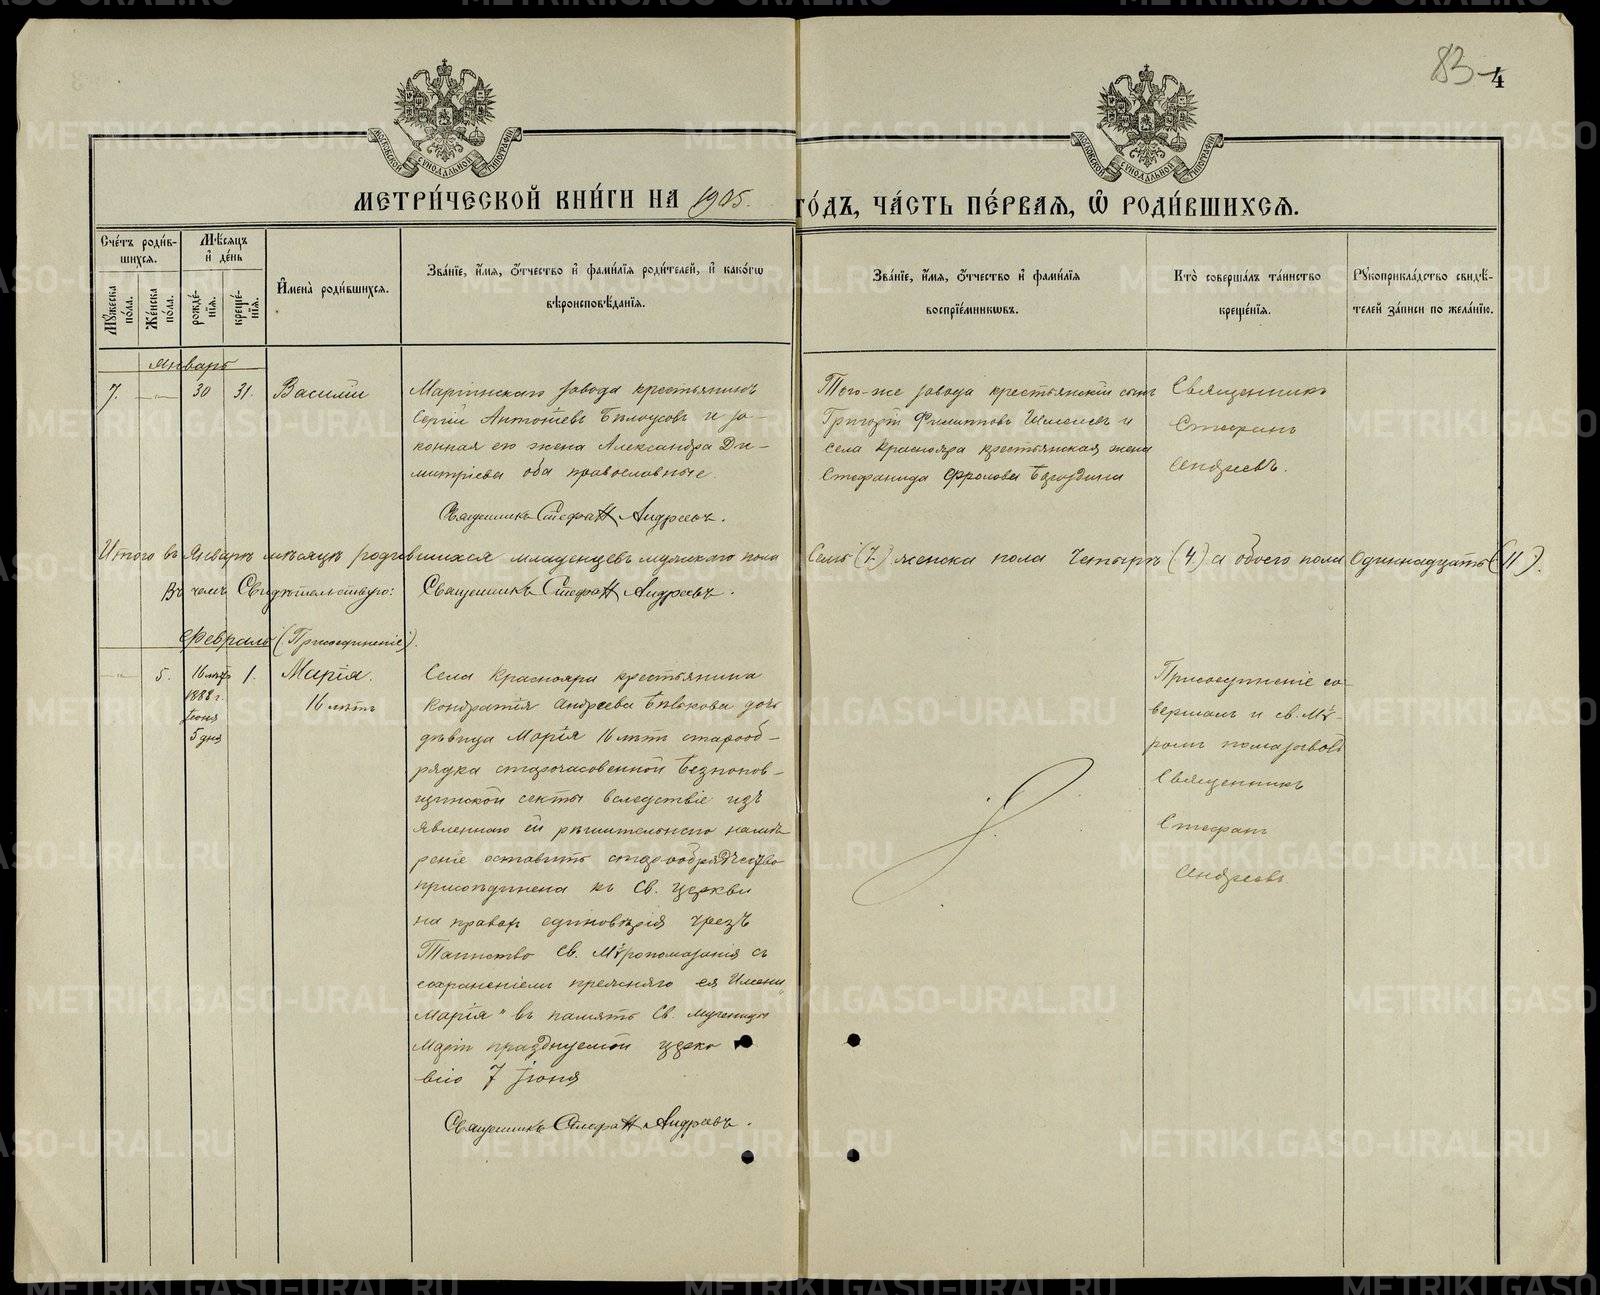 83 4
МОСКОВСКОЙ СУНОДАЛЬНОЙ ТИПОГРАФІИ
МОСКОВСКОЙ СУНОДАЛЬНОЙ ТИПОГРАФІИ
МЕТРИ́ЧЕСКОЙ КНИ́ГИ НА 1905. ГО́ДЪ, ЧА́СТЬ ПЕ́РВАЯ, Ѡ РОДИ́ВШИХСЯ.
Сче́тъ роди́в-
шихся.
Мꙋжеска по́ла.
Же́нска по́ла.
Мѣ́сяцъ и҆ де́нь
рожде́-
нїя.
креще́-
нїя.
И҆мена̀ роди́вшихся.
Зва́нїе, и҆́мя, ѻ҆́тчество и҆ фами́лїя роди́телей, и҆ како́гѡ
вѣроисповѣ́данїя.
Зва́нїе, и҆́мя, ѻ҆́тчество и҆ фами́лїя
воспрїе́мникѡвъ.
Кто̀ соверша́лъ та́инство
креще́нїя.
Рꙋкоприкла́дство свидѣ́-
телей за́писи по жела́нїю.
Январь
7. — 30 31. Василій
Маріинскаго завода крестьянинъ
Сергій Антоніевъ Бѣлоусовъ и за-
конная его жена Александра Ди-
митріева оба православные.
Священникъ Стефанъ Андреевъ.
Того-же завода крестьянскій сынъ
Григорій Филипповъ и
села Краснояра крестьянская жена
Стефанида Фролова
Священникъ
Стефанъ
Андреевъ.
Итого въ Январѣ мѣсяцѣ родившихся младенцевъ мужскаго пола Семь (7.) женска пола Четыре (4.) а обоего пола Одиннадцать (11).
Въ чемъ Свидѣтельствую: Священникъ Стефанъ Андреевъ.
Февраль (Присоединеніе).
— 5. 16 лѣтъ 1. Марія.
1888 г.
Іюня
5 дня
16 лѣтъ
Села Краснояра крестьянина
Кондратія Андреева дочь
дѣвица Марія 16 лѣтъ старооб-
рядка старочасовенной безпопов-
щинской секты вследствіе изъ
явленнаго ей рѣшительнаго намѣ
реніе оставить старообрядчество
присоединена къ Св. церкви
на правах единовѣрія чрезъ
Таинство Св. Мѵропомазанія съ
сохраненіемъ прежняго ея Имени
„Марія" въ память Св. мученицы
Маріи празднуемой церко
вію 7 Іюня
Священникъ Стефанъ Андреевъ.
Присоединеніе со-
вершалъ и св. Мѵ-
ромъ помазывалъ
Священникъ
Стефанъ
Андреевъ
METRIKI.GASO-URAL.RU